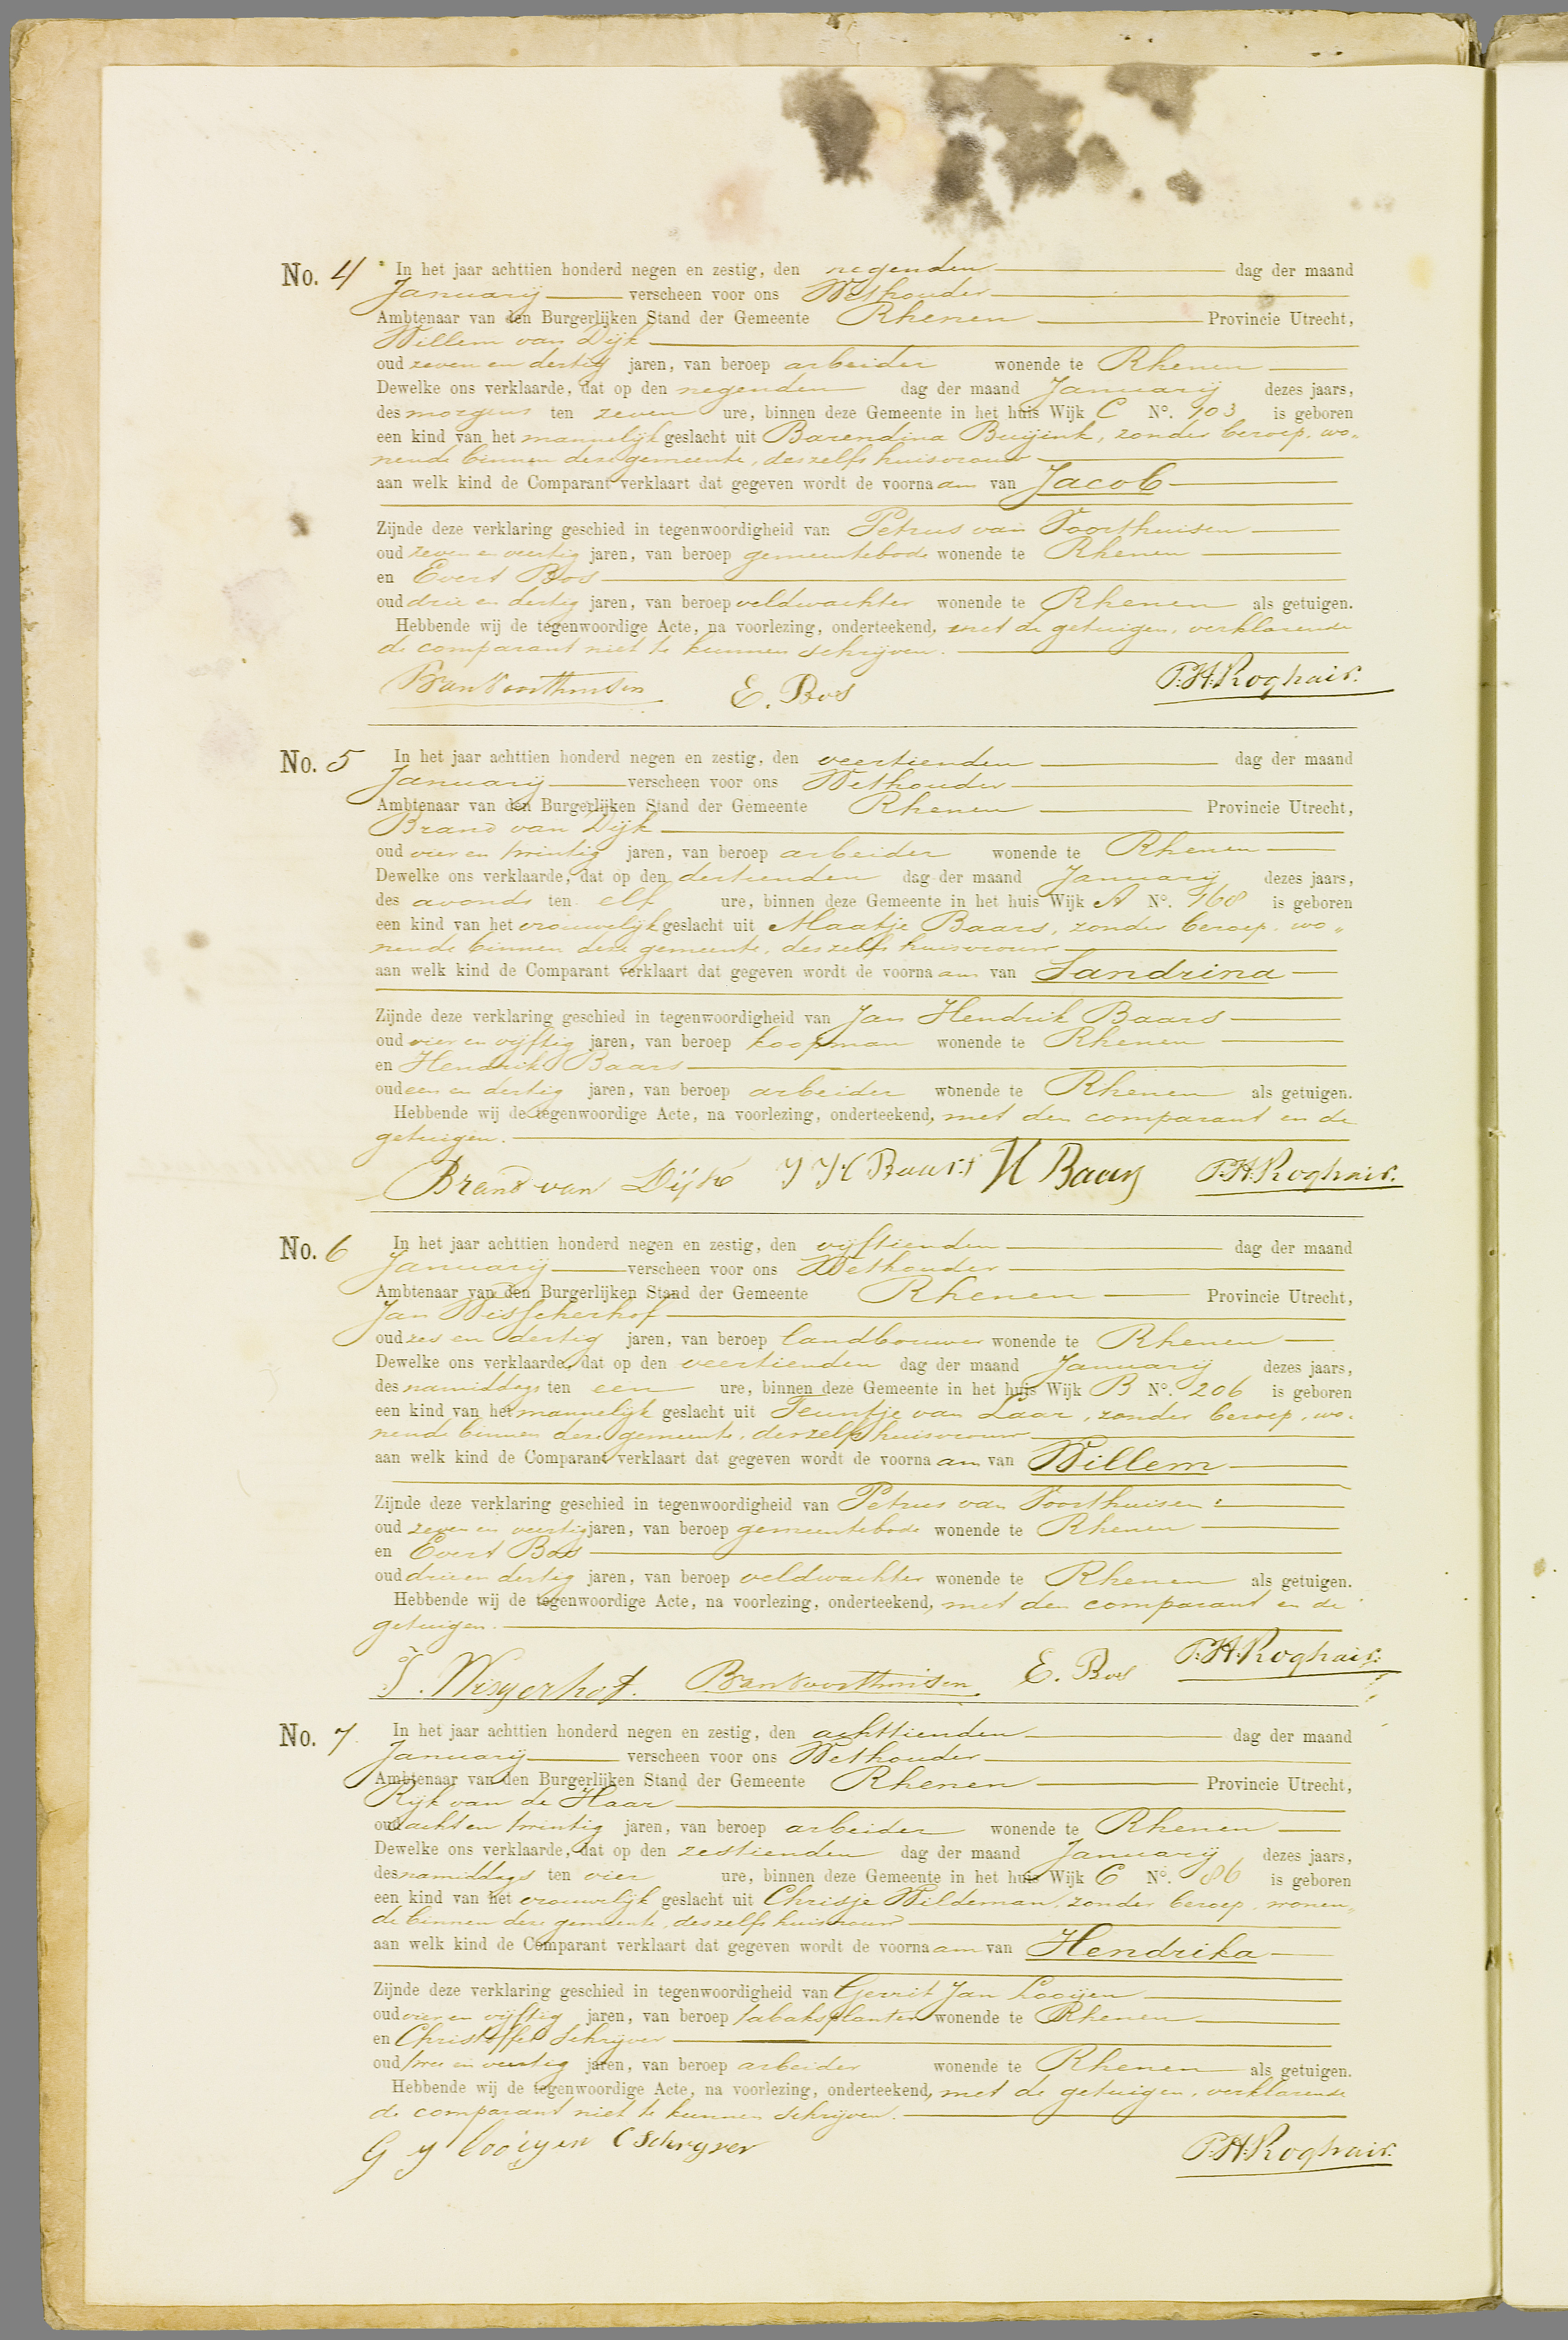 No. 4 In het jaar achttien honderd negen en zestig, den negenden dag der maand
Januarij verscheen voor ons Wethouder
Ambtenaar van den Burgerlijken Stand der Gemeente Rhenen Provincie Utrecht,
Willem van Dijk
oud zeven en dertig jaren, van beroep arbeider wonende te Rhenen
Dewelke ons verklaarde, dat op den negenden dag der maand Januarij dezes jaars,
des morgens ten zeven ure, binnen deze Gemeente in het huis Wijk C No. 103 is geboren
een kind van het mannelijk geslacht uit Barendina Buijink, zonder beroep, wo„
nende binnen deze gemeente, deszelfs huisvrouw
aan welk kind de Comparant verklaart dat gegeven wordt de voornaam van Jacob
Zijnde deze verklaring geschied in tegenwoordigheid van Petrus van Voorthuisen
oud zeven en veertig jaren, van beroep gemeentebode wonende te Rhenen
en Evert Bos
oud drie en dertig jaren, van beroep veldwachter wonende te Rhenen als getuigen.
Hebbende wij de tegenwoordige Acte, na voorlezing, onderteekend, met de getuigen, verklarende
de comparant niet te kunnen schrijven.
PvanVoorthuisen E. Bos P.H. Roghair.
No. 5 In het jaar achttien honderd negen en zestig, den veertienden dag der maand
Januarij verscheen voor ons Wethouder
Ambtenaar van den Burgerlijken Stand der Gemeente Rhenen Provincie Utrecht,
Brand van Dijk
oud vier en twintig jaren, van beroep arbeider wonende te Rhenen
Dewelke ons verklaarde, dat op den dertienden dag der maand Januarij dezes jaars,
des avonds ten elf ure, binnen deze Gemeente in het huis Wijk A No. 168 is geboren
een kind van het vrouwelijk geslacht uit Maatje Baars, zonder beroep, wo„
nende binnen deze gemeente, deszelfs huisvrouw
aan welk kind de Comparant verklaart dat gegeven wordt de voornaam van Sandrina
Zijnde deze verklaring geschied in tegenwoordigheid van Jan Hendrik Baars
oud vier en vijftig jaren, van beroep koopman wonende te Rhenen
en Hendrik Baars
oud een en dertig jaren, van beroep arbeider wonende te Rhenen als getuigen.
Hebbende wij de tegenwoordige Acte, na voorlezing, onderteekend, met den comparant en de
getuigen.
Brand van Dijk J H Baars H Baars P.H. Roghair.
No. 6 In het jaar achttien honderd negen en zestig, den vijftienden dag der maand
Januarij verscheen voor ons Wethouder
Ambtenaar van den Burgerlijken Stand der Gemeente Rhenen Provincie Utrecht,
Jan Wisscherhof
oud zes en dertig jaren, van beroep landbouwer wonende te Rhenen
Dewelke ons verklaarde, dat op den veertienden dag der maand Januarij dezes jaars,
des namiddags ten een ure, binnen deze Gemeente in het huis Wijk B No. 206 is geboren
een kind van het mannelijk geslacht uit Teuntje van Laar, zonder beroep, wo„
nende binnen deze gemeente, deszelfs huisvrouw
aan welk kind de Comparant verklaart dat gegeven wordt de voornaam van Willem
Zijnde deze verklaring geschied in tegenwoordigheid van Petrus van Voorthuisen
oud zeven en veertig jaren, van beroep gemeentebode wonende te Rhenen
en Evert Bos
oud drie en dertig jaren, van beroep veldwachter wonende te Rhenen als getuigen.
Hebbende wij de tegenwoordige Acte, na voorlezing, onderteekend, met den comparant en de
getuigen.
PvanVoorthuisen E. Bos P.H. Roghair.
No. 7 In het jaar achttien honderd negen en zestig, den achttienden dag der maand
Januarij verscheen voor ons Wethouder
Ambtenaar van den Burgerlijken Stand der Gemeente Rhenen Provincie Utrecht,
Rijk van de Haar
oud acht en twintig jaren, van beroep arbeider wonende te Rhenen
Dewelke ons verklaarde, dat op den zestienden dag der maand Januarij dezes jaars,
des namiddags ten vier ure, binnen deze Gemeente in het huis Wijk C No. 86 is geboren
een kind van het vrouwelijk geslacht uit Chrisje Wildeman, zonder beroep, wonen„
de binnen deze gemeente, deszelfs huisvrouw
aan welk kind de Comparant verklaart dat gegeven wordt de voornaam van Hendrika
Zijnde deze verklaring geschied in tegenwoordigheid van Gerrit Jan Looijen
oud vier en vijftig jaren, van beroep tabaksplanter wonende te Rhenen
en Christoffel Schrijver
oud twee en veertig jaren, van beroep arbeider wonende te Rhenen als getuigen.
Hebbende wij de tegenwoordige Acte, na voorlezing, onderteekend, met de getuigen, verklarende
de comparant niet te kunnen schrijven.
G J looijen C Schryver P.H. Roghair.